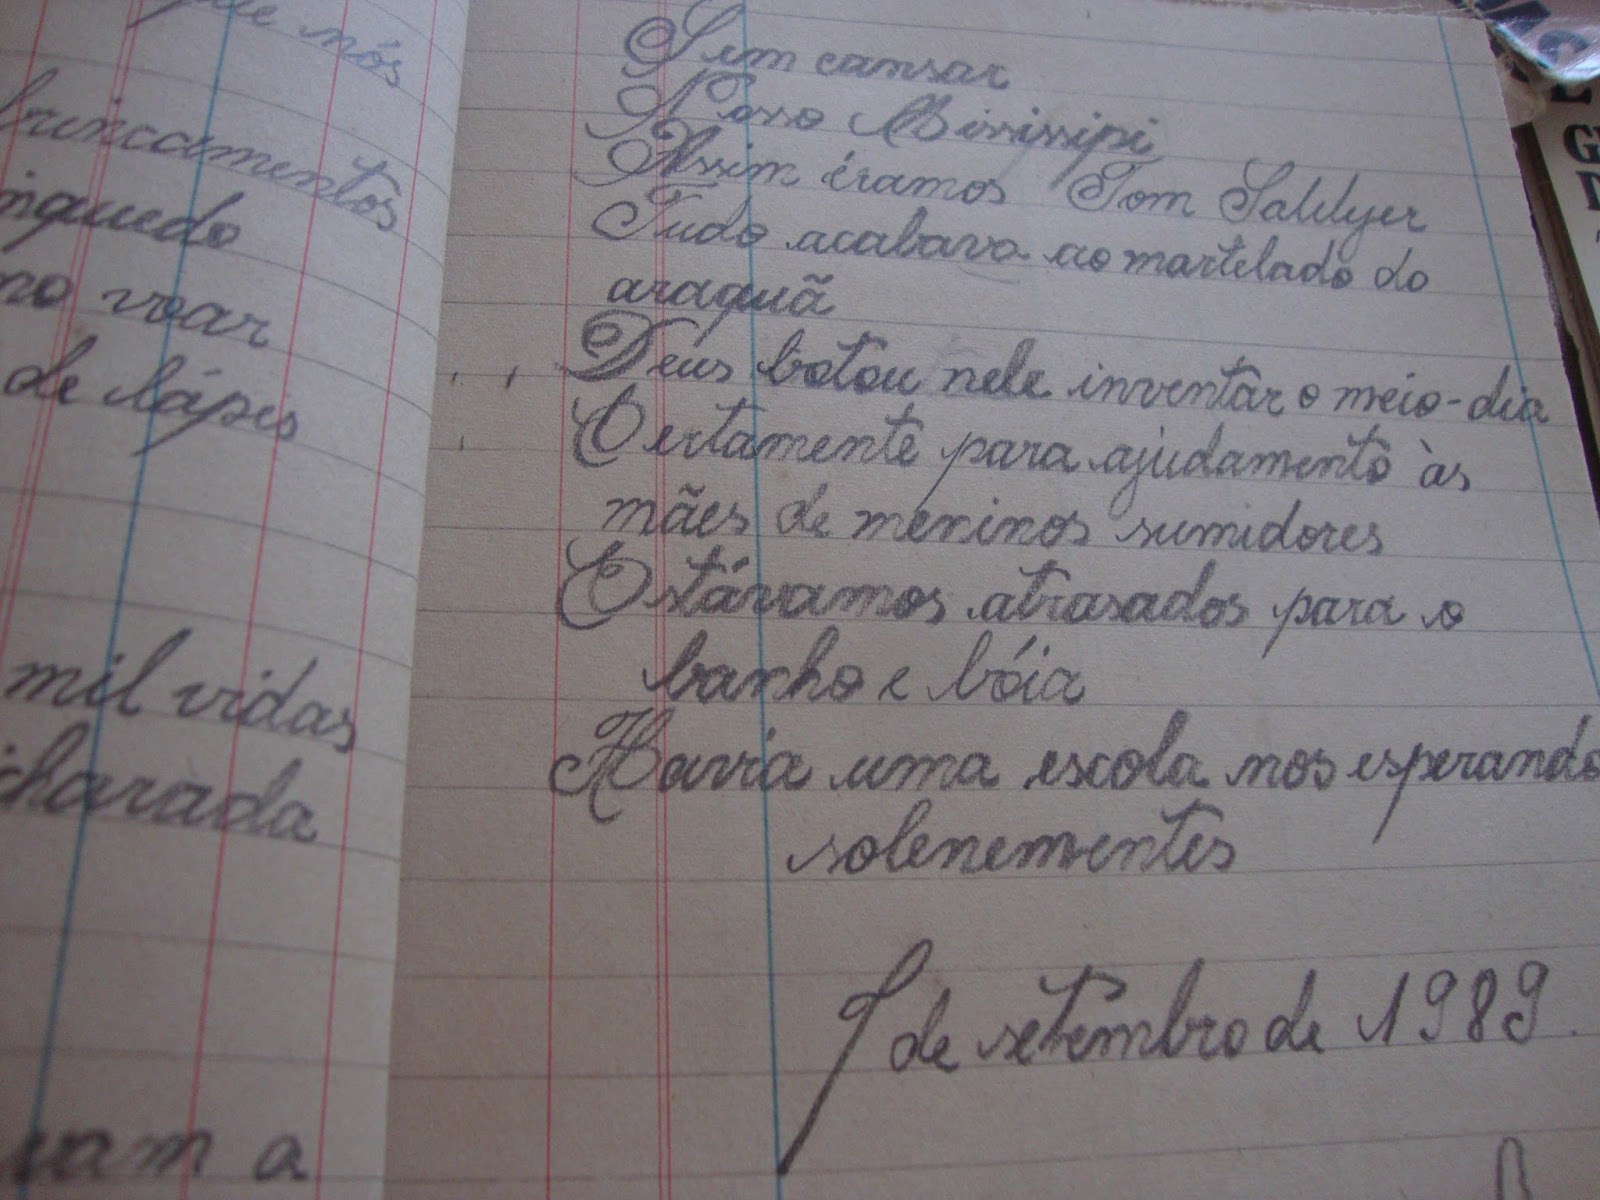 que nós
brincamentos
inquedo
no voar
de lápis
mil vidas
charada
vam a
Sem cansar
Nosso Missisipi
Assim éramos Tom Saldyer
Tudo acabava ao martelado do
araquã
Deus botou nele inventar o meio-dia
Certamente para ajudamento às
mães de meninos sumidores
Estávamos atrasados para o
banho e bóia
Havia uma escola nos esperando
solenementes
de setembro de 1989.